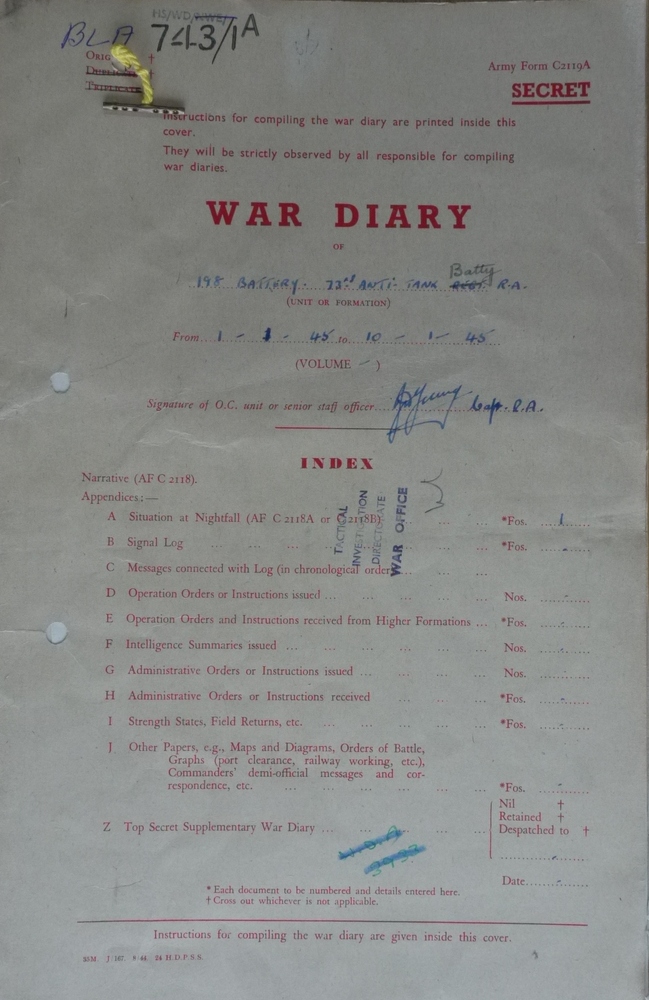 BLA 743/1A
Army Form C2119A
SECRET
Instructions for compiling the war diary are printed inside this
cover.
They will be strictly observed by all responsible for compiling
war diaries.
WAR DIARY
OF
Batty
198 BATTERY. 73rd ANTI-TANK REGT R.A.
(UNIT OR FORMATION)
From 1 - 1 - 45 to 10 - 1 - 45
(VOLUME - )
Signature of O.C. unit or senior staff officer Capt. R.A.
INDEX
Narrative (AF C 2118).
Appendices:—
A Situation at Nightfall (AF C 2118A or C2118B) *Fos. 1
B Signal Log ... ... ... ... *Fos. -
C Messages connected with Log (in chronological order) ... ...
D Operation Orders or Instructions issued ... ... ... ... Nos. -
E Operation Orders and Instructions received from Higher Formations ... *Fos. -
F Intelligence Summaries issued ... ... ... ... ... Nos. -
G Administrative Orders or Instructions issued ... ... ... ... Nos. -
H Administrative Orders or Instructions received ... ... *Fos. -
I Strength States, Field Returns, etc. ... ... ... ... *Fos. -
J Other Papers, e.g., Maps and Diagrams, Orders of Battle,
Graphs (port clearance, railway working, etc.),
Commanders' demi-official messages and cor-
respondence, etc. ... ... ... ... ... *Fos. -
Nil †
Retained †
Z Top Secret Supplementary War Diary ... ... ... ... Despatched to †
Date -
* Each document to be numbered and details entered here.
† Cross out whichever is not applicable.
TACTICAL
INVESTIGATION
DIRECTORATE
WAR OFFICE
Instructions for compiling the war diary are given inside this cover.